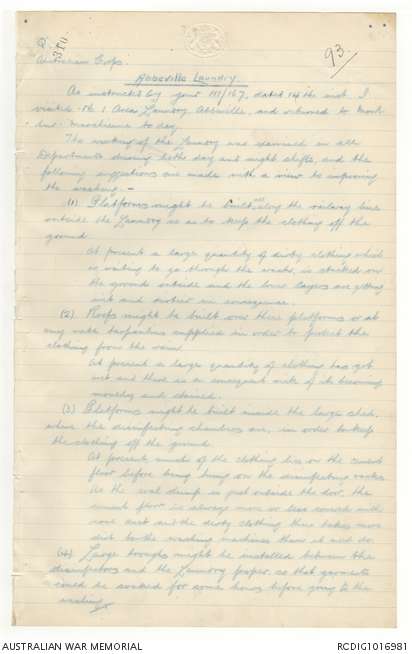 Q.
350
93
Australian Corps.
Abbeville Laundry.
As instructed by your 111/167, dated 14th inst. I
visited No 1 Area Laundry Abbeville, and returned to Mont
today.
The working of the Laundry was examined in all
Departments during both day and night shifts, and the
following suggestions are made with a view to improving
the washing -
(1) Platforms might be built along the railway line
outside the Laundry so as to keep the clothing off the
ground
At present a large quantity of dirty clothing which
is waiting to go through the wash, is stacked on
the ground outside and the lower layers are getting
wet and in consequence.
(2) Roofs might be built over these platforms or at
any rate tarpaulins supplied in order to protect the
clothing from the rain.
At present a large quantity of clothing has got
wet and there is a consequent risk of its becoming
mouldy and stained.
(3) Platforms might be built inside the large shed,
where the disinfecting chambers are, in order to keep
the clothing off the ground
At present much of the clothing lies on the cement
floor before being hung on the disinfecting racks
As the coal dump is just outside the door, the
cement floor is always more or less covered with
coal dust and the dirty clothing thus takes more
dirt to the washing machines than it need do.
(4) Large troughs might be installed between the
disinfectors and the Laundry proper so that garments
could be soaked for some hours before going to the
washing
AUSTRALIAN WAR MEMORIAL
RCDIG1016981